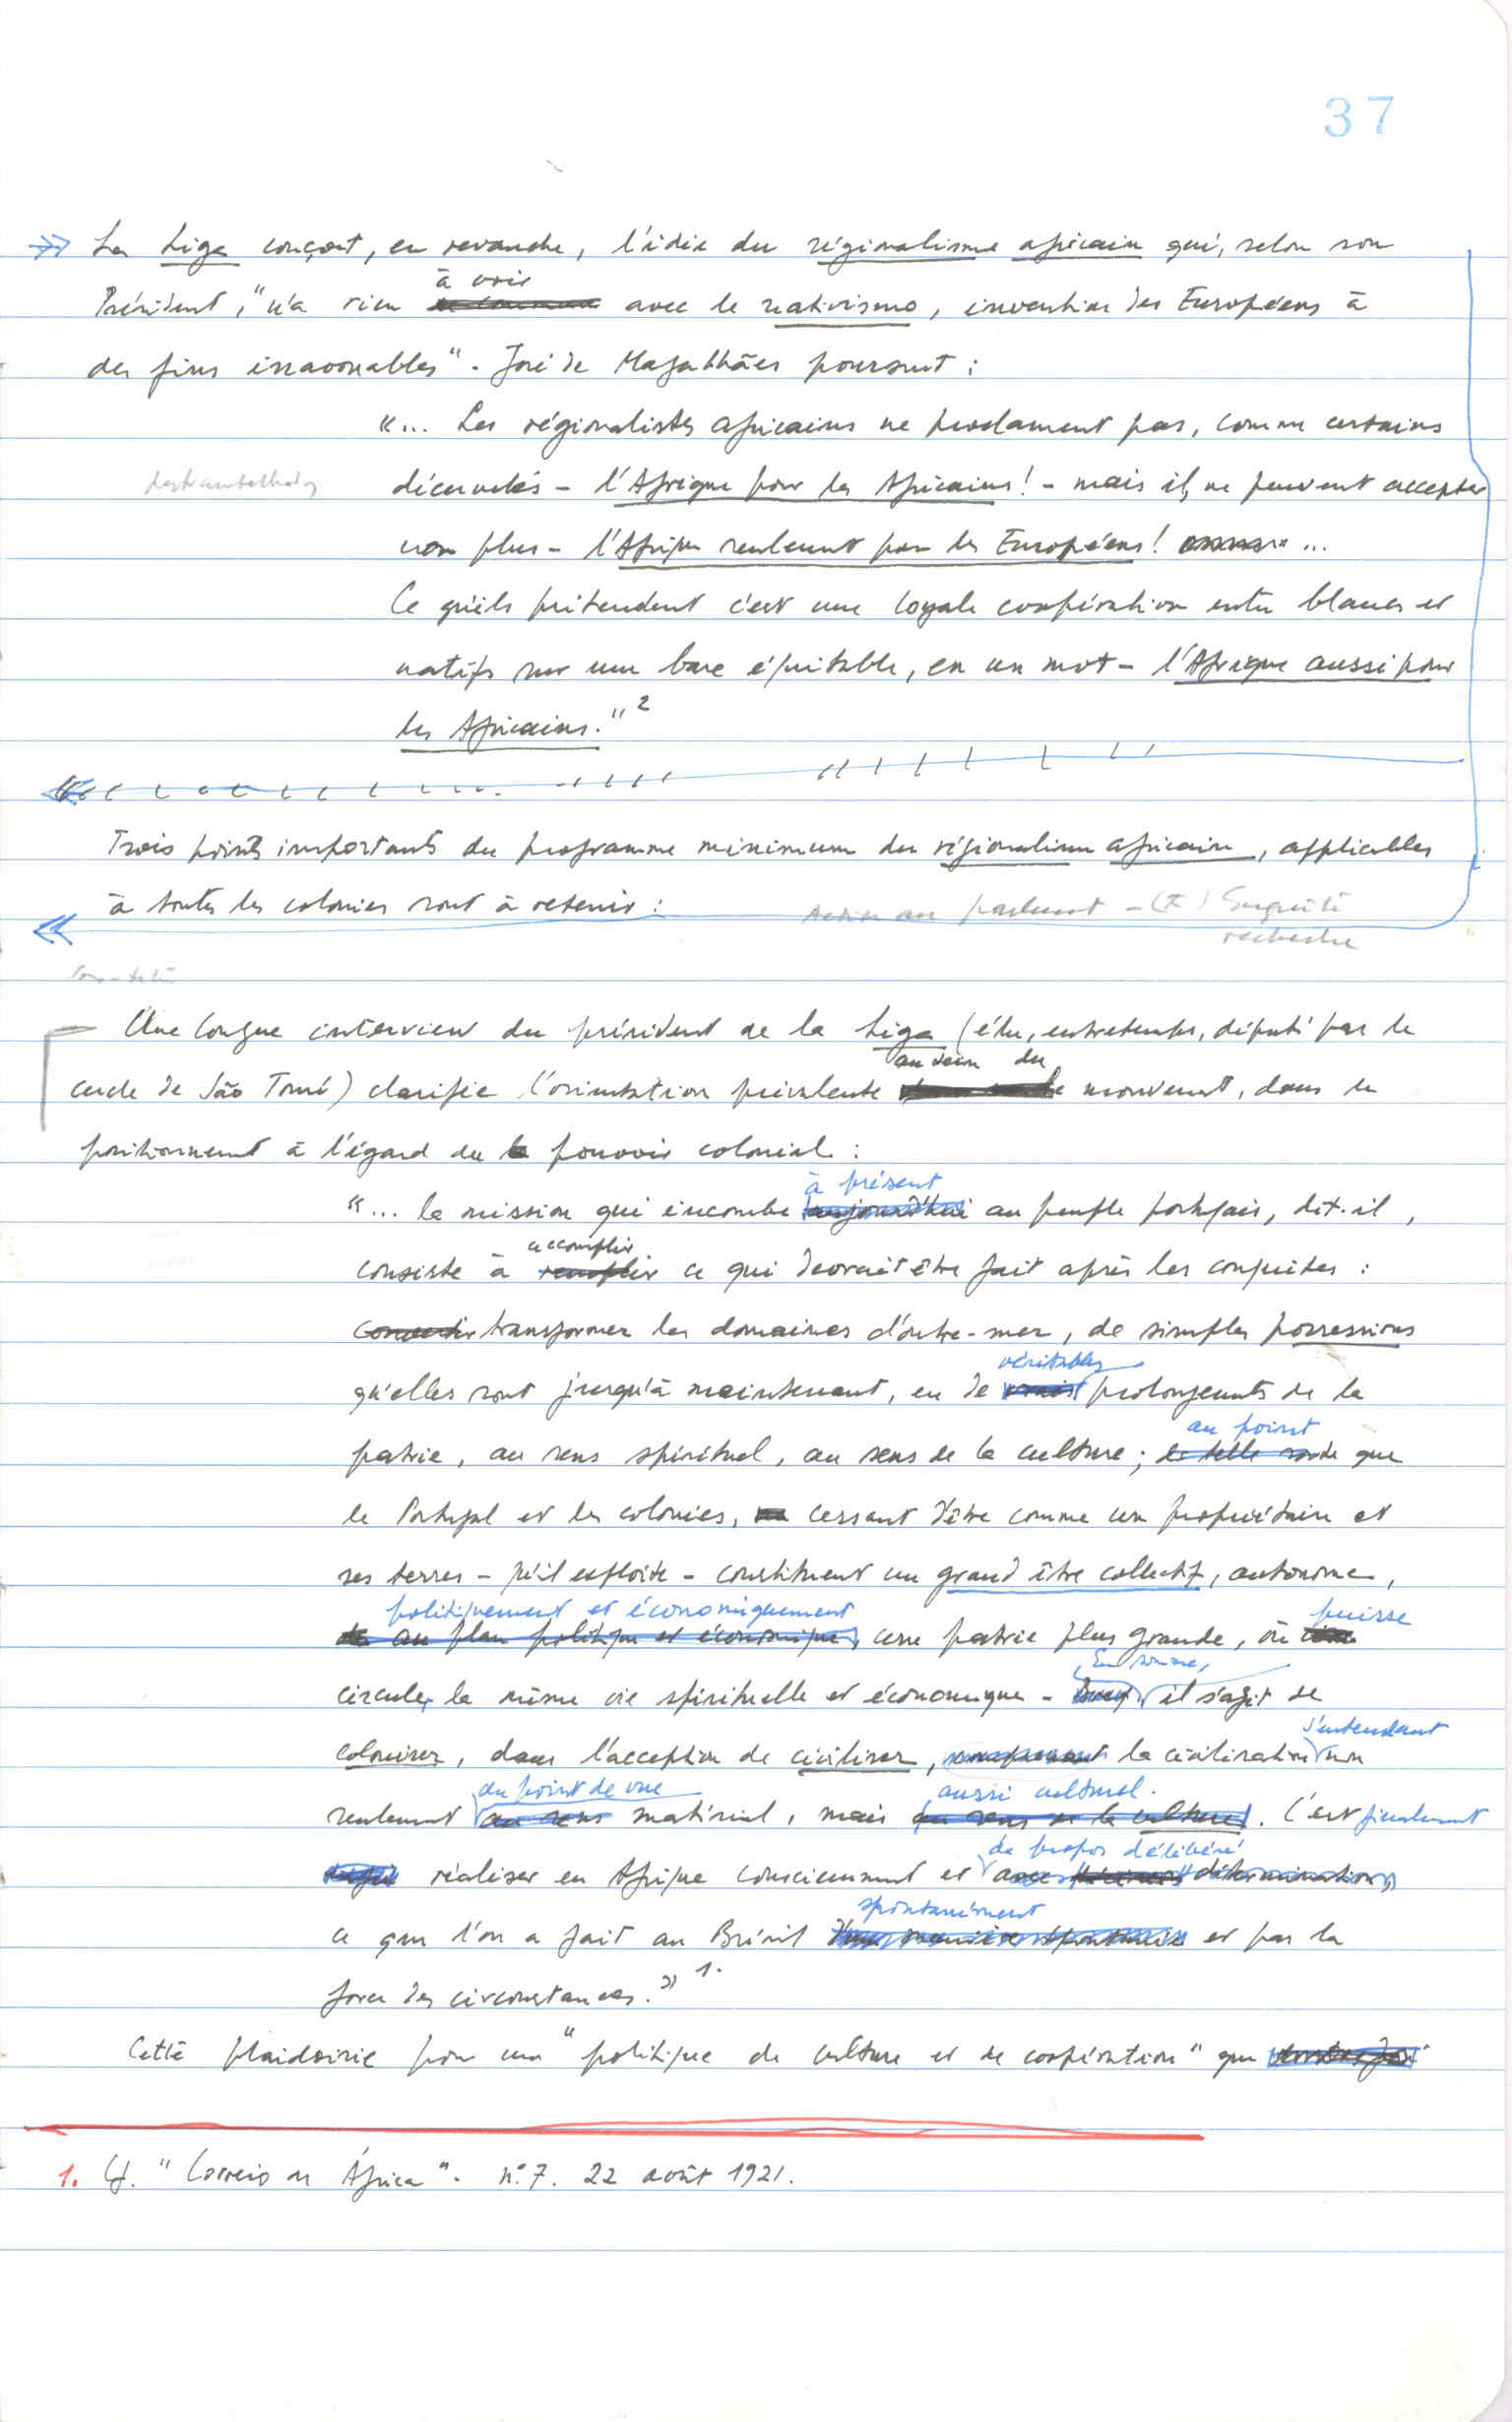 37
La Liga conçoit, en revanche, l'idée du régionalisme africain qui, selon son
à voir
Président, "n'a rien avec le nativismo, invention des Européens à
des fins inavouables". José de Magalhães poursuit :
"... Les régionalistes africains ne proclament pas, comme certains
décervelés - l'Afrique pour les Africains! - mais ils ne peuvent accepter
non plus - l'Afrique seulement pour les Européens! ...
Ce qu'ils prétendent c'est une loyale coopération entre blancs et
natifs sur une base équitable, en un mot - l'Afrique aussi pour
les Africains." 2
Trois points importants du programme minimum du régionalisme africain, applicables
à toutes les colonies sont à retenir :
Action au parlement - Enquête
recherche
Une longue interview du président de la Liga (élu, entretemps, député par le
au sein du
cercle de São Tomé) clarifie l'orientation prévalente mouvement, dans le
positionnement à l'égard du pouvoir colonial :
à présent
"... la mission qui incombe aujourd'hui au peuple portugais, dit-il,
accomplir
consiste à remplir ce qui devrait être fait après les conquêtes :
convertir transformer les domaines d'outre-mer, de simples possessions
véritables
qu'elles sont jusqu'à maintenant, en de vrais prolongements de la
au point
patrie, au sens spirituel, au sens de la culture ; de telle sorte que
le Portugal et les colonies, cessant d'être comme un propriétaire et
ses terres - qu'il exploite - constituent un grand être collectif, autonome,
politiquement et économiquement puisse
au plan politique et économique, une patrie plus grande, où
En somme,
circuler la même vie spirituelle et économique - Bref, il s'agit de
s'entendant
coloniser, dans l'acception de civiliser, comprenant la civilisation non
au point de vue aussi culturel.
seulement au sens matériel, mais au sens de la culture. C'est finalement
de propos délibéré
réaliser en Afrique consciemment et avec détermination,
spontanément
ce que l'on a fait au Brésil d'une manière spontanée et par la
force des circonstances." 1.
Cette plaidoirie pour une "politique de culture et de coopération" que
1. Cf. "Correio de África". nº 7. 22 août 1921.